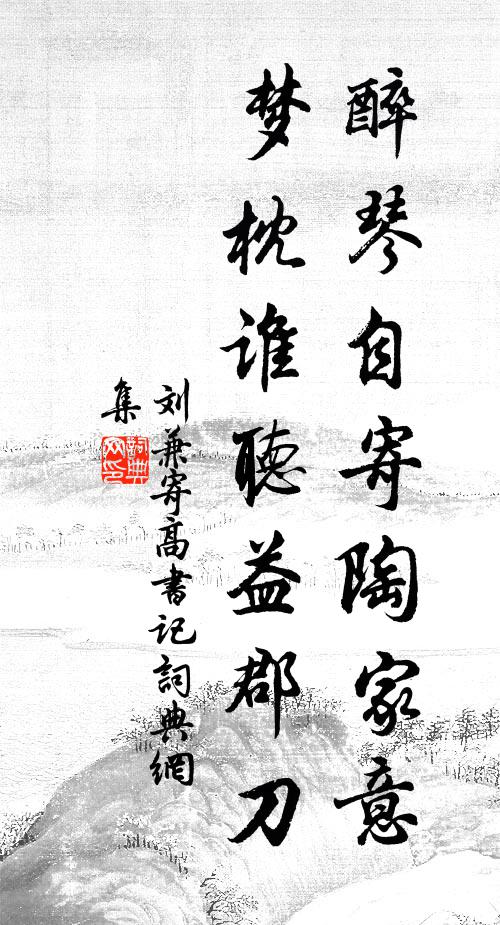 醉琴自寄陶家意
梦枕谁聽益郡刀
刘兼寄高書记詞典網
集
詞典网印